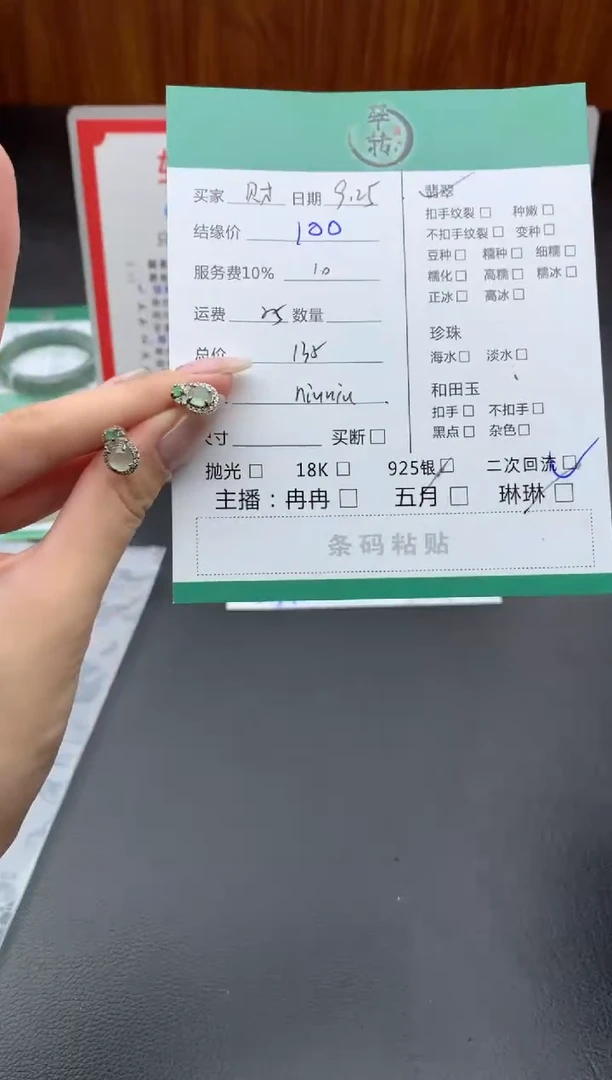 驿坊
买家 财 日期 9.25
结缘价 100
服务费10% 10
运费 25 数量
总价 135
niuniu
寸 买断
翡翠
扣手纹裂 种嫩
不扣手纹裂 变种
豆种 糯种 细糯
糯化 高糯 糯冰
正冰 高冰
珍珠
海水 淡水
和田玉
扣手 不扣手
黑点 杂色
抛光 18K 925银 二次回流
主播：冉冉 五月 琳琳
条码粘贴